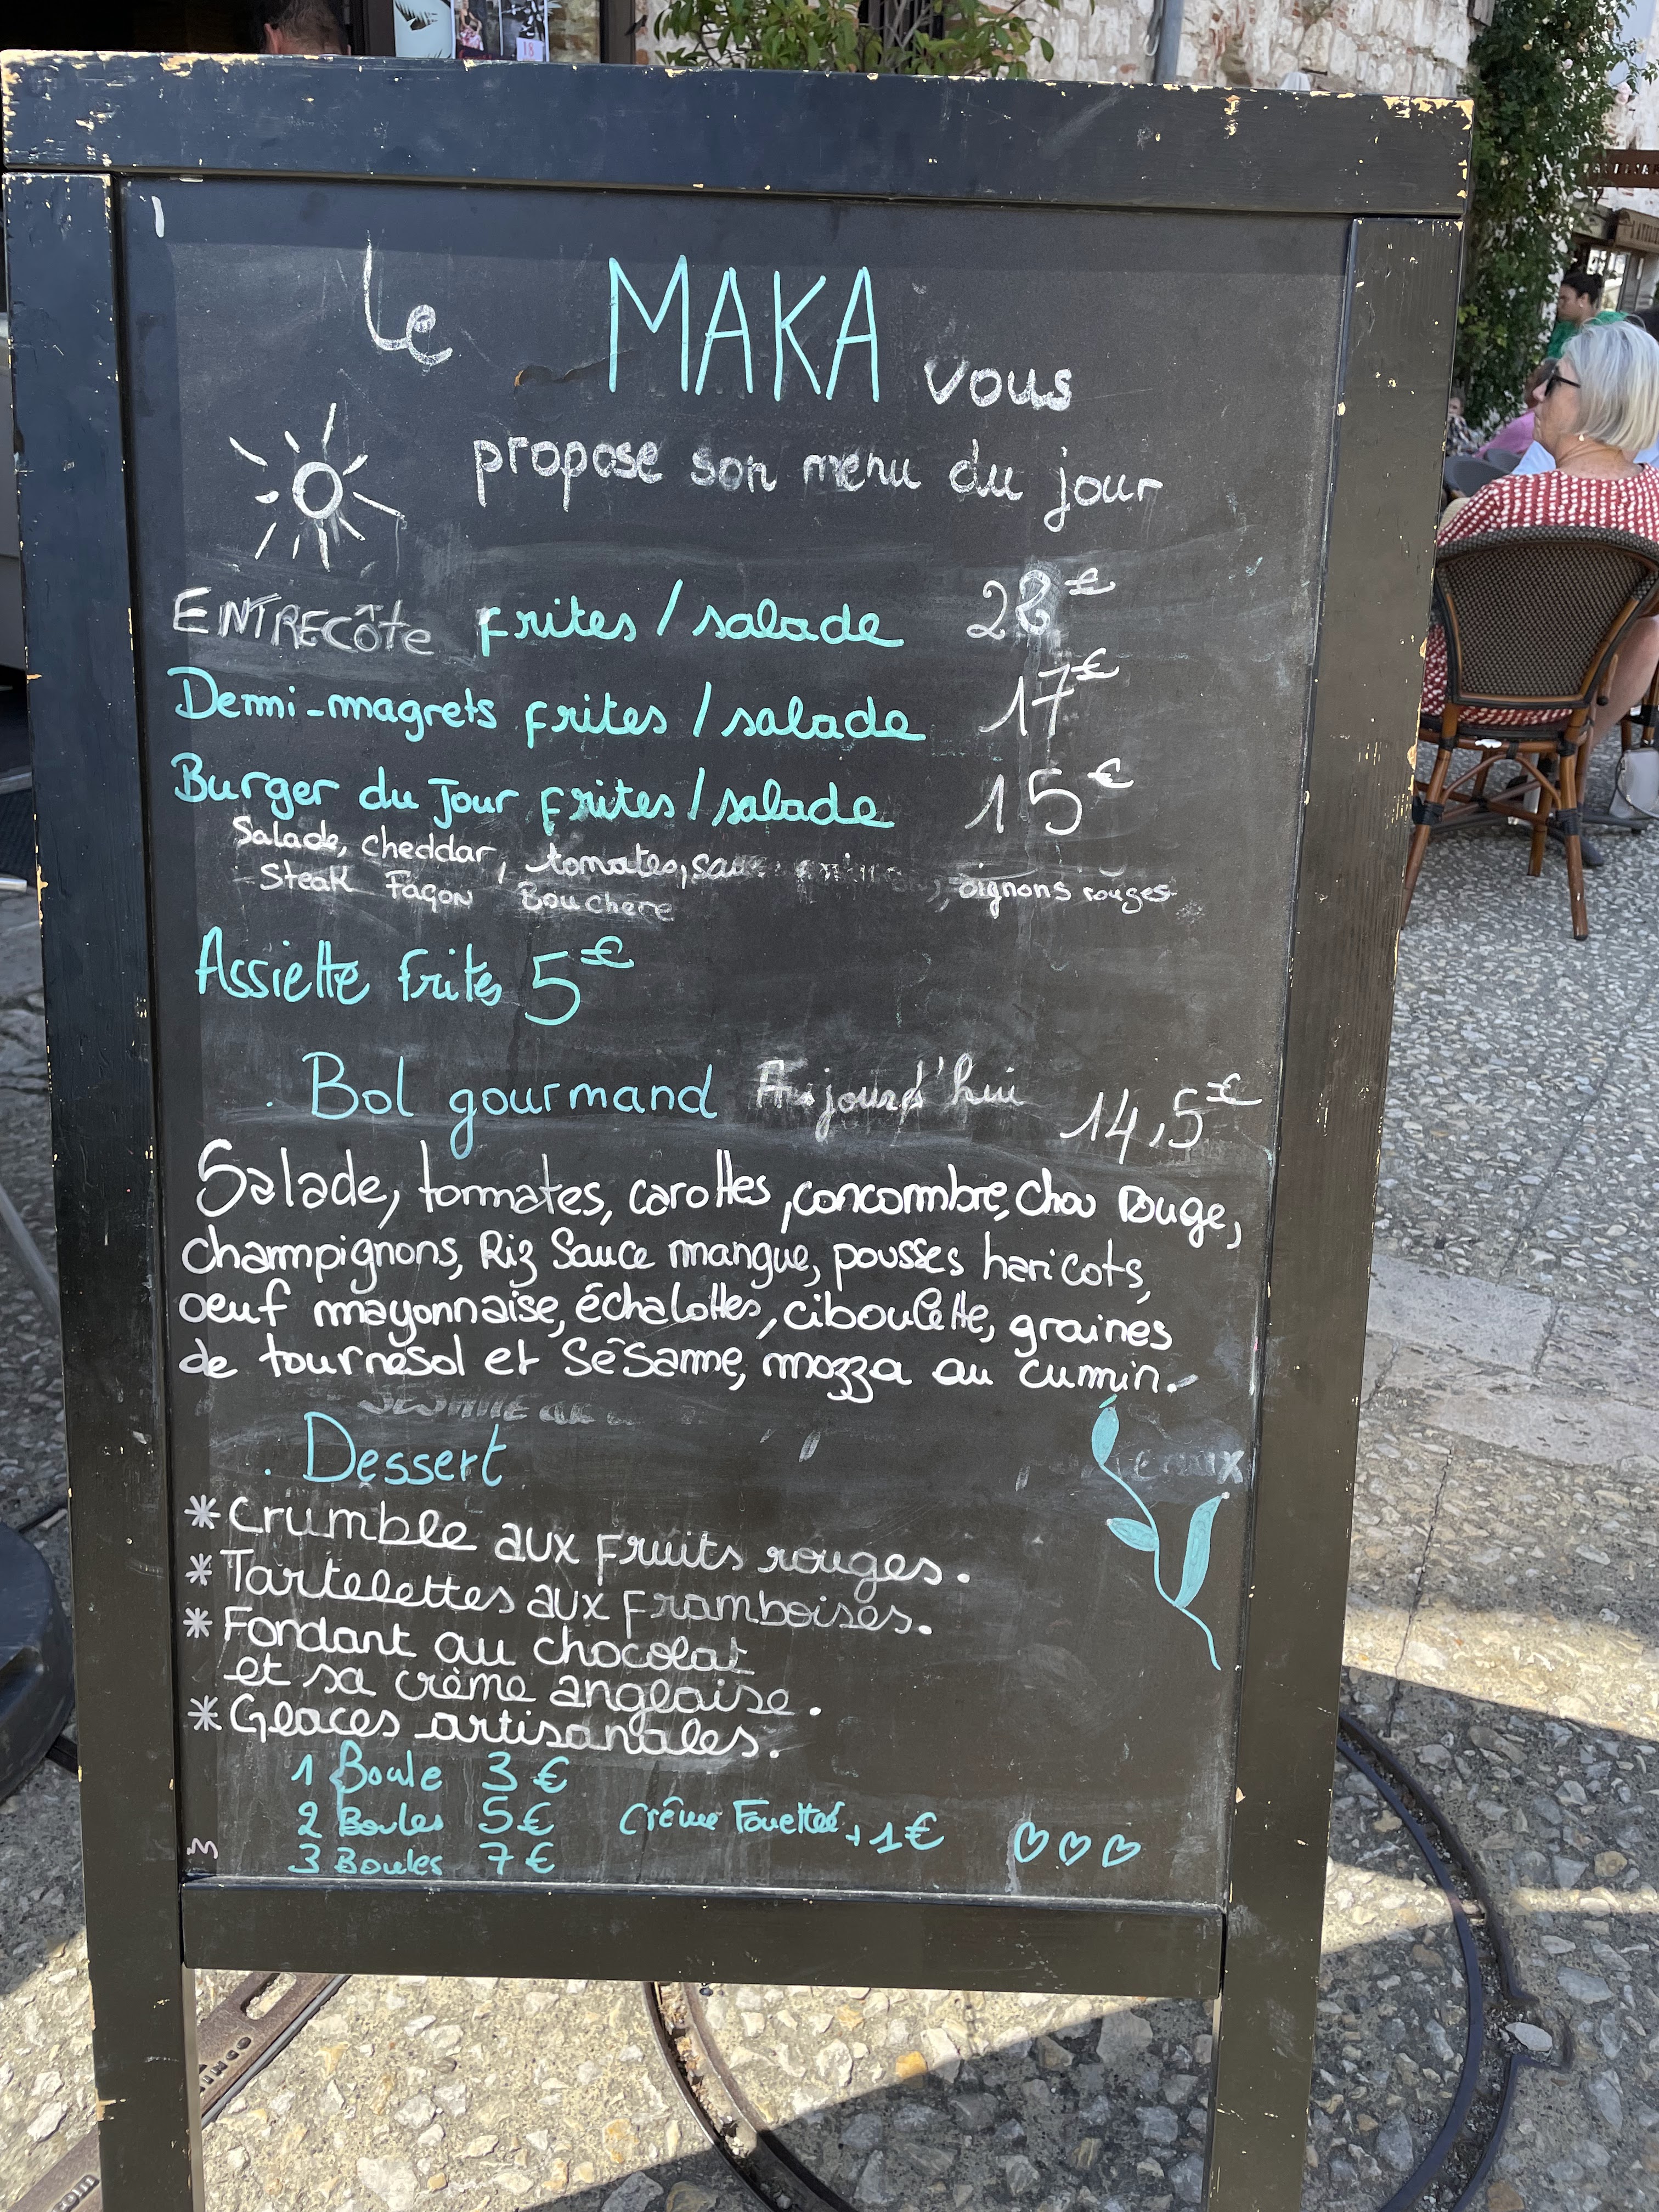 le MAKA vous
propose son menu du jour
ENTRECôte frites / salade 22€
Demi-magrets frites / salade 17€
Burger du Jour frites / salade 15€
Salade, cheddar, tomates, oignons rouges
Steak Façon Bouchere
Assiette frites 5€
. Bol gourmand Aujourd'hui 14,5€
Salade, tomates, carottes, concombre, chou rouge,
champignons, Riz Sauce mangue, pousses haricots,
oeuf mayonnaise, échalottes, ciboulette, graines
de tournesol et sésame, mozza au cumin.
. Dessert
* Crumble aux fruits rouges.
* Tartelettes aux framboises.
* Fondant au chocolat
et sa crème anglaise.
* Glaces artisanales.
1 Boule 3€
2 Boules 5€ Crême Fouettée +1€
3 Boules 7€
18